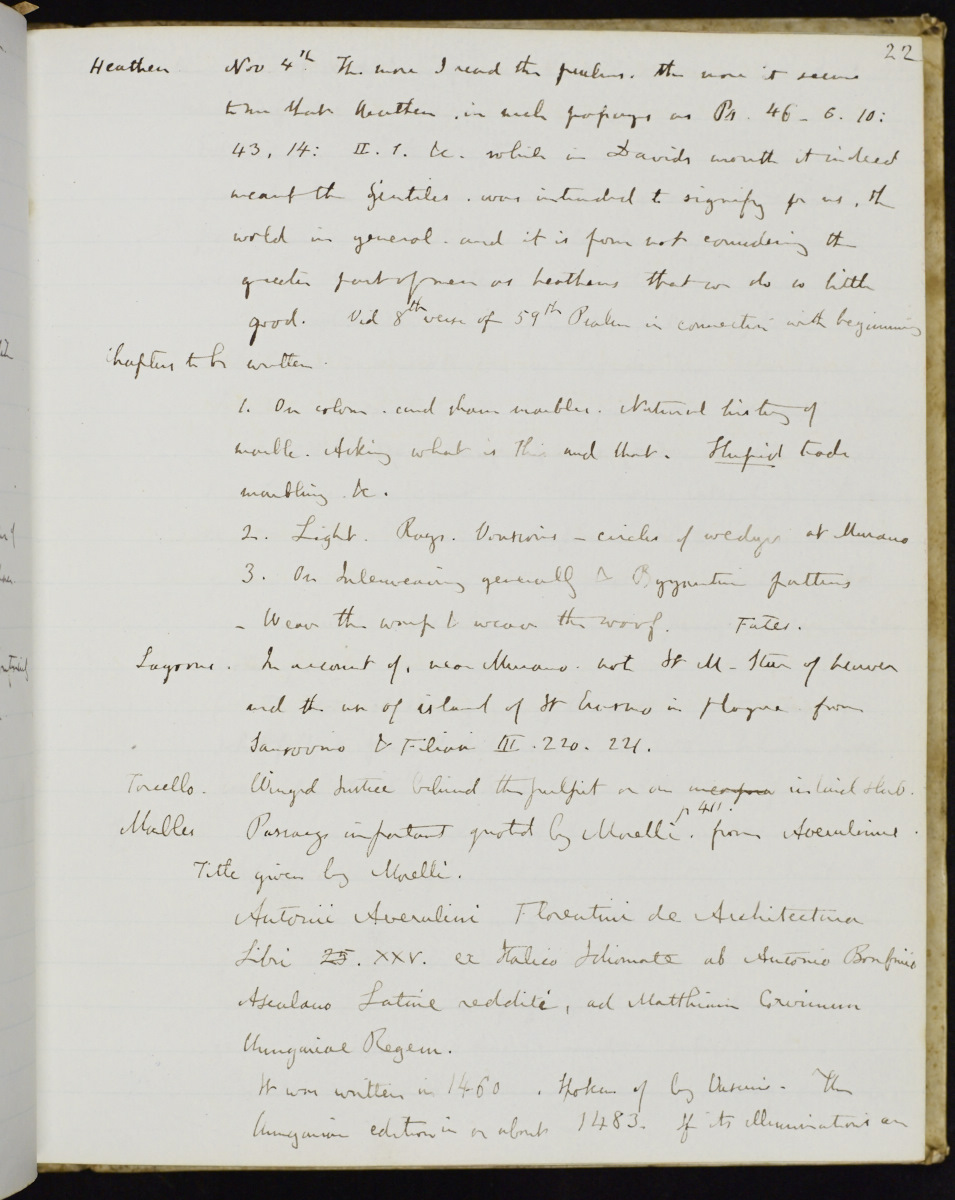 22
Heathen Nov 4th. The more I read the psalms. the more it seems
to me that heathen, in such passages as Ps. 46 - 6. 10:
43, 14: II. 1. &c. while in Davids mouth it indeed
meant the Gentiles. was intended to signify for us, the
world in general. and it is from not considering the
greater part of men as heathens that we do so little
good. Vid 8th verse of 59th Psalm in connection with beginning
Chapters to be written.
1. On colour. and sham marbles. Natural history of
marble. Asking what is this and that. Stupid trade
marbling &c.
2. Light. Rays. - circles of wedges at Murano
3. On Interweaving generally & Byzantine patterns
- Weave the warp & weave the woof. Fates.
Lagoons. In account of, near Murano. not St M - Star of heaven
and the use of island of St Erasmo in plague from
Sansovino & Filiasi III. 220. 221.
Torcello. Winged Justice behind the pulpit on an inlaid slab.
Marbles Passage important quoted by Morelli. p 41. from Averulinus.
Title given by Morelli.
Antonii Averulini Florentini de Architectura
Libri 25. XXV. ex Italico Idiomate ab Antonio Bonfinio
Asculano Latine redditi, ad Matthiam Corvinum
Hungariae Regem.
It was written in 1460. Spoken of by Vasari. The
Hungarian edition in or about 1483. If its illuminations are